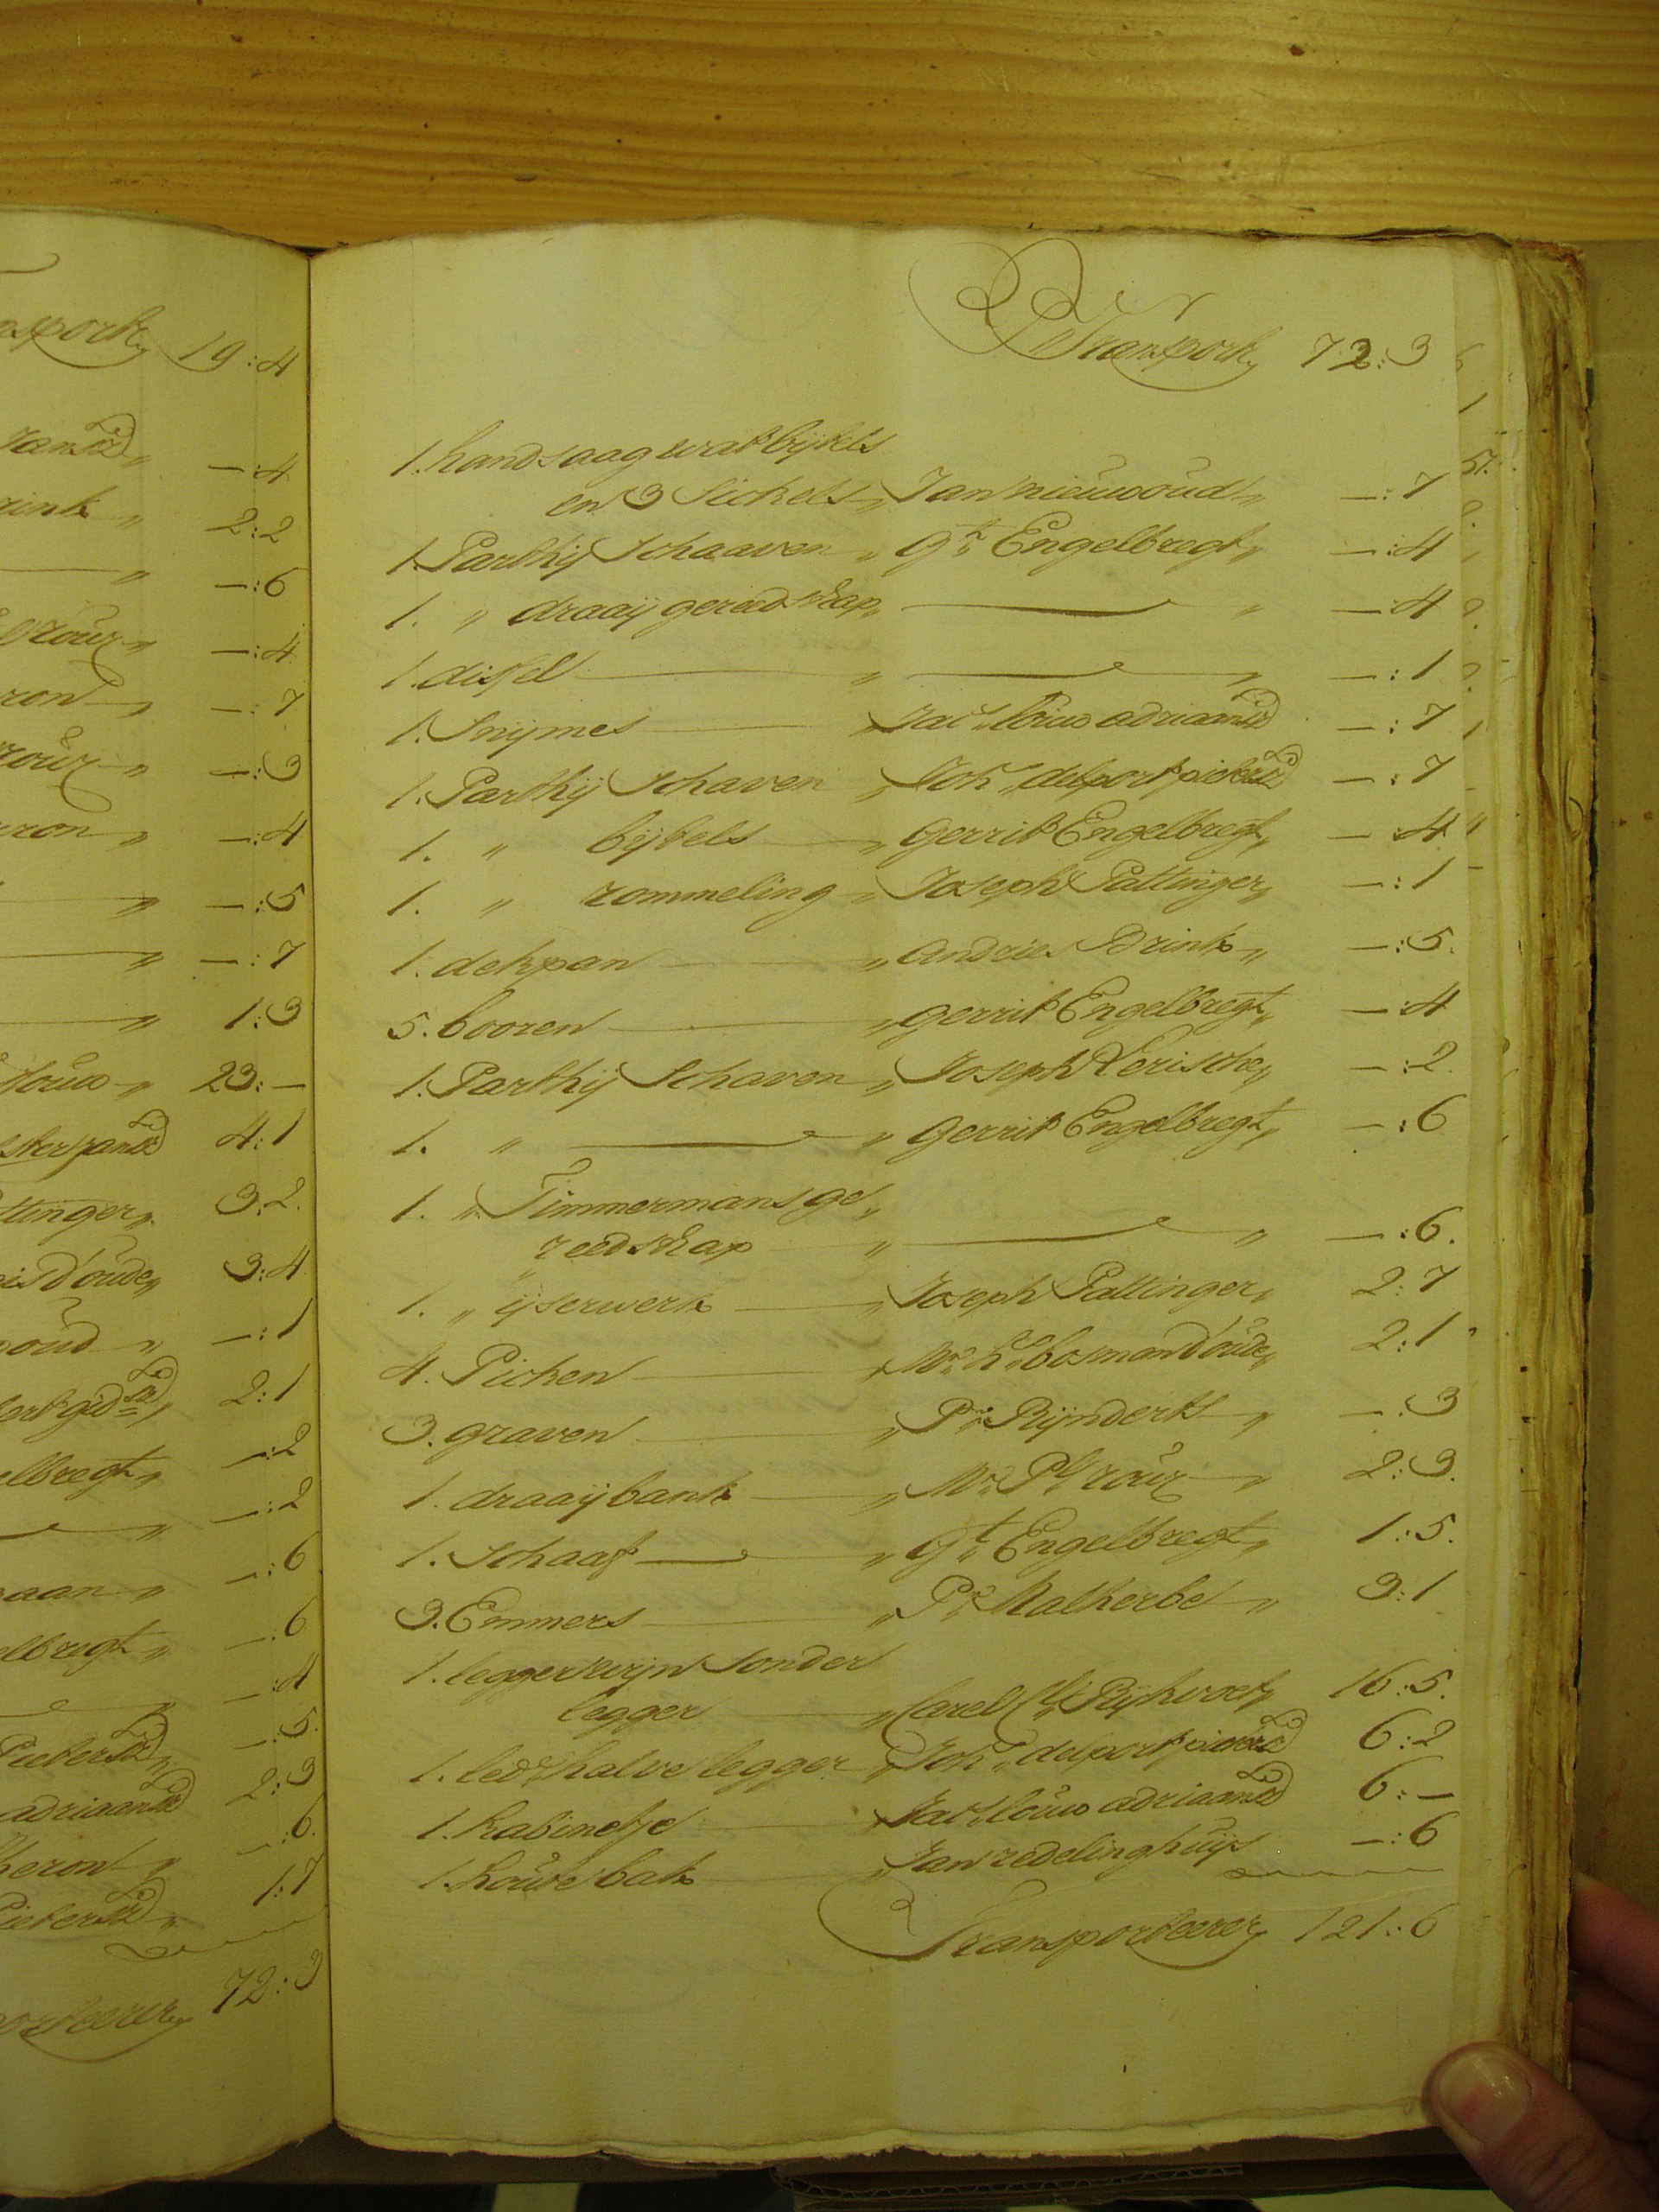 nsport 19:4
—:4
rink „ 2:2
„ —:6
—:4
ron „ —:7
—:3
ron „ —:4
„ —:5
„ —:7
„ 1:3
louw „ 23:—
4:1
ttinger „ 3:2.
d'oude „ 3:4
oud „ —:1
2:1
elbregt „ —:2
„ —:2
aan „ —:6
elbregt „ —:6
„ —:4
Pieter —:5.
adriaan 2:3
heron „ —:6.
Pieter 1:7
porteere 72:3
P.r Transport 72:3
1. handsaag wat bijtels
en 3 Sickels „ Jan nieuwoud „ —:7
1. Parthij Schaaven „ G.t Engelbregt „ —:4
1. „ draaij gereedschap „ —— „ —:4
1. dissel —— „ —— „ —:1
1. Snijmes —— „ Jac.s louw adriaansz —:7
1. Parthij Schaven „ Joh.s delport pietersz —:7
1. „ bijtels —— „ Gerrit Engelbregt „ —:4
1. „ rommeling „ Joseph Pattinger „ —:1
1. dekpan —— „ andries Brink „ —:5.
5. booren —— „ gerrit Engelbregt „ —:4
1. Parthij Schaven „ Joseph „ —:2.
1. „ —— „ Gerrit Engelbregt „ —:6
1. „ Timmermans ge„
„reedschap —— „ —— „ —:6.
1. „ ijserwerk —— „ Joseph Pattinger „ 2:7
4. Picken —— „ bosman d'oude „ 2:1
3. graven —— „ P.r Rijnderts „ —:3
1. draaijbank —— „ W.d P.s roux „ 2:3.
1. Schaaf —— „ G.t Engelbregt „ 1:5.
3. Emmers —— „ P.r Malherbe „ 3:1
1. legger wijn sonder
legger —— „ Carel Rijkvoet „ 16:5.
1. led.e halve legger „ Joh.s delport pietersz 6:2
1. kabinetje —— „ Jac.s louw adriaansz 6:—
1. houte bak —— „ Jan redelinghuijs —:6
Transporteere 121:6